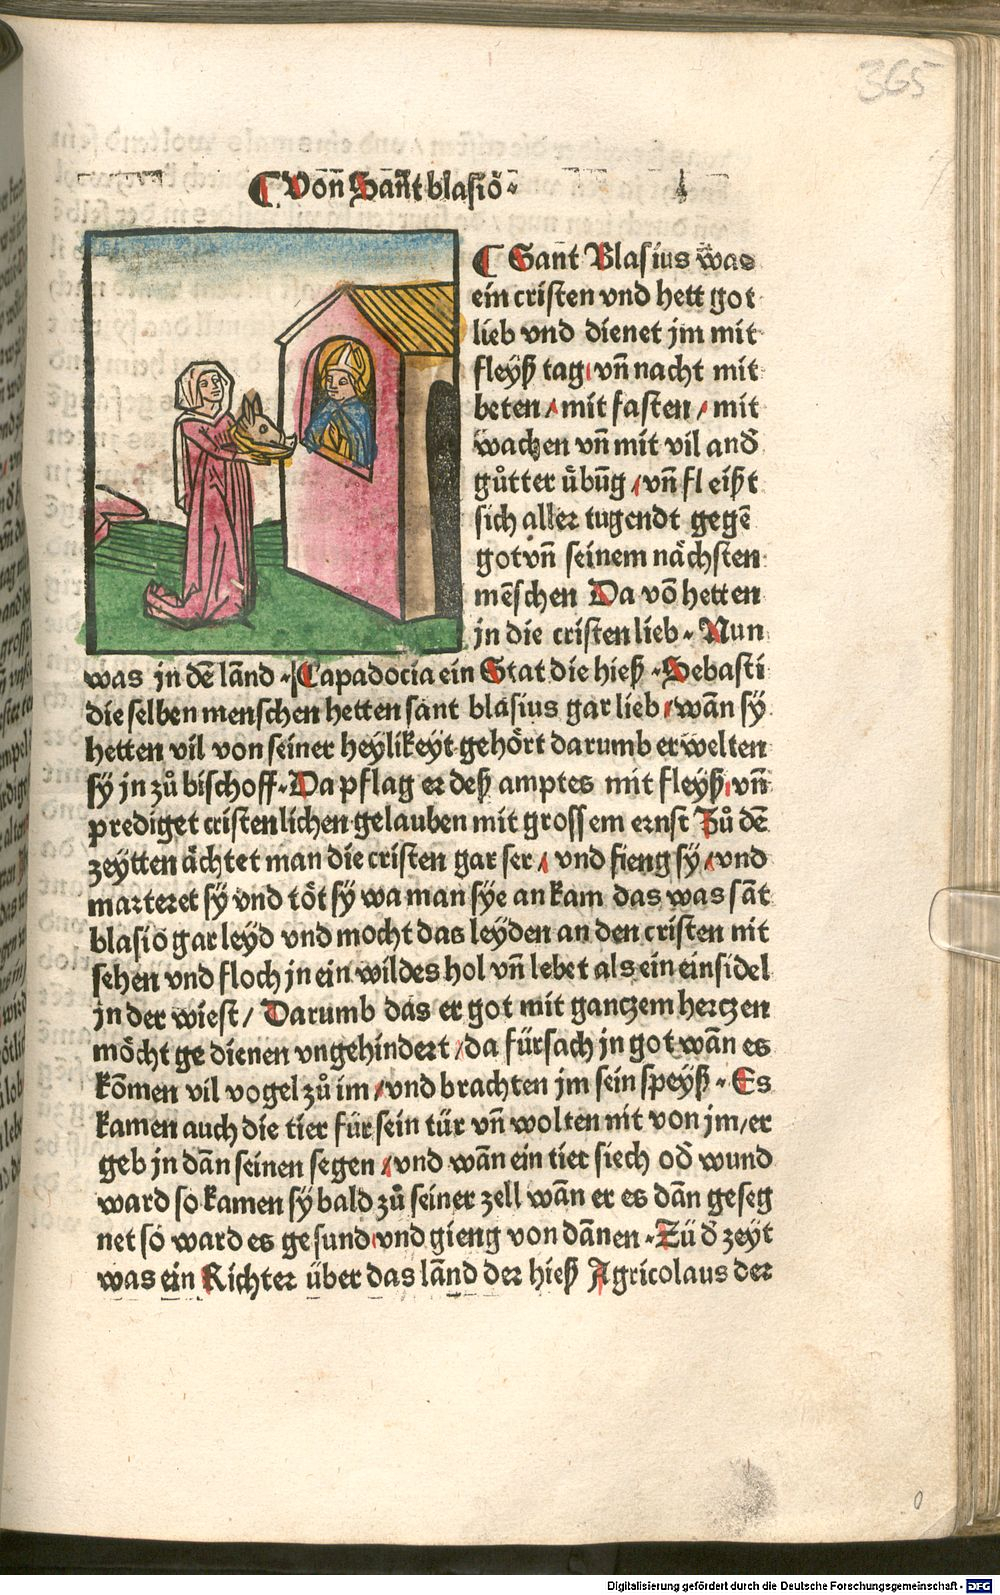 365
Von Sant blasiō
Sant Blasius was
ein cristen vnd hett got
lieb vnd dienet jm mit
fleyß tag vn̄ nacht mit
beten / mit fasten / mit
wachen vn̄ mit vil and̄
gůtter übūg / vn̄ fl eißt
sich aller tugendt gegē
got vn̄ seinem nächsten
mēschen Da vō hetten
jn die cristen lieb Nun
was jn dē lānd Capadocia ein Stat die hieß Sebasti
die selben menschen hetten sant blasius gar lieb / wān sy
hetten vil von seiner heylikeyt gehört darumb erwelten
sy jn zů bischoff Da pflag er deß amptes mit fleyß vn̄
prediget cristenlichen gelauben mit grossem ernst Zů dē
zeytten ächtet man die cristen gar ser / vnd fieng sy / vnd
marteret sy vnd töt sy wa man sye an kam das was sāt
blasiō gar leyd vnd mocht das leyden an den cristen nit
sehen vnd floch jn ein wildes hol vn̄ lebet als ein einsidel
jn der wiest / Darumb das er got mit gantzem hertzen
möcht ge dienen vngehindert / da fürsach jn got wān es
kōmen vil vogel zů im / vnd brachten jm sein speyß Es
kamen auch die tier für sein tür vn̄ wolten nit von jm / er
geb jn dān seinen segen / vnd wān ein tier siech od̄ wund
ward so kamen sy bald zů seiner zell wān er es dān geseg
net so ward es gesund vnd gieng von dānen Zů d̄ zeyt
was ein Richter über das lānd der hieß Agricolaus der
0
Digitalisierung gefördert durch die Deutsche Forschungsgemeinschaft - DFG